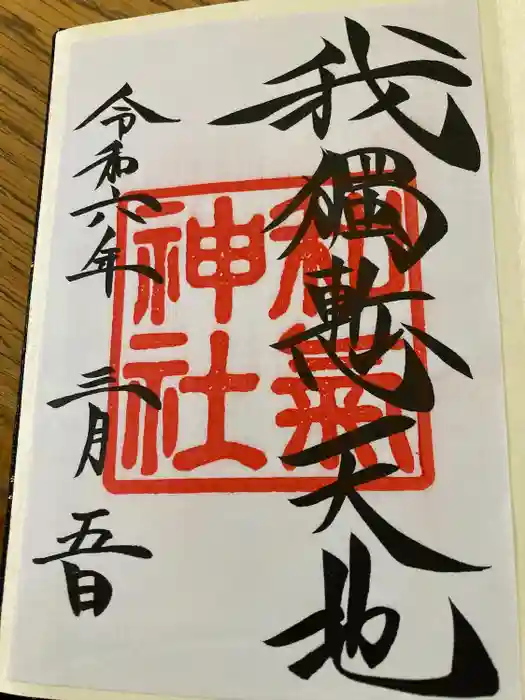 我獨慙天地
和氣神社
令和六年 三月 五日